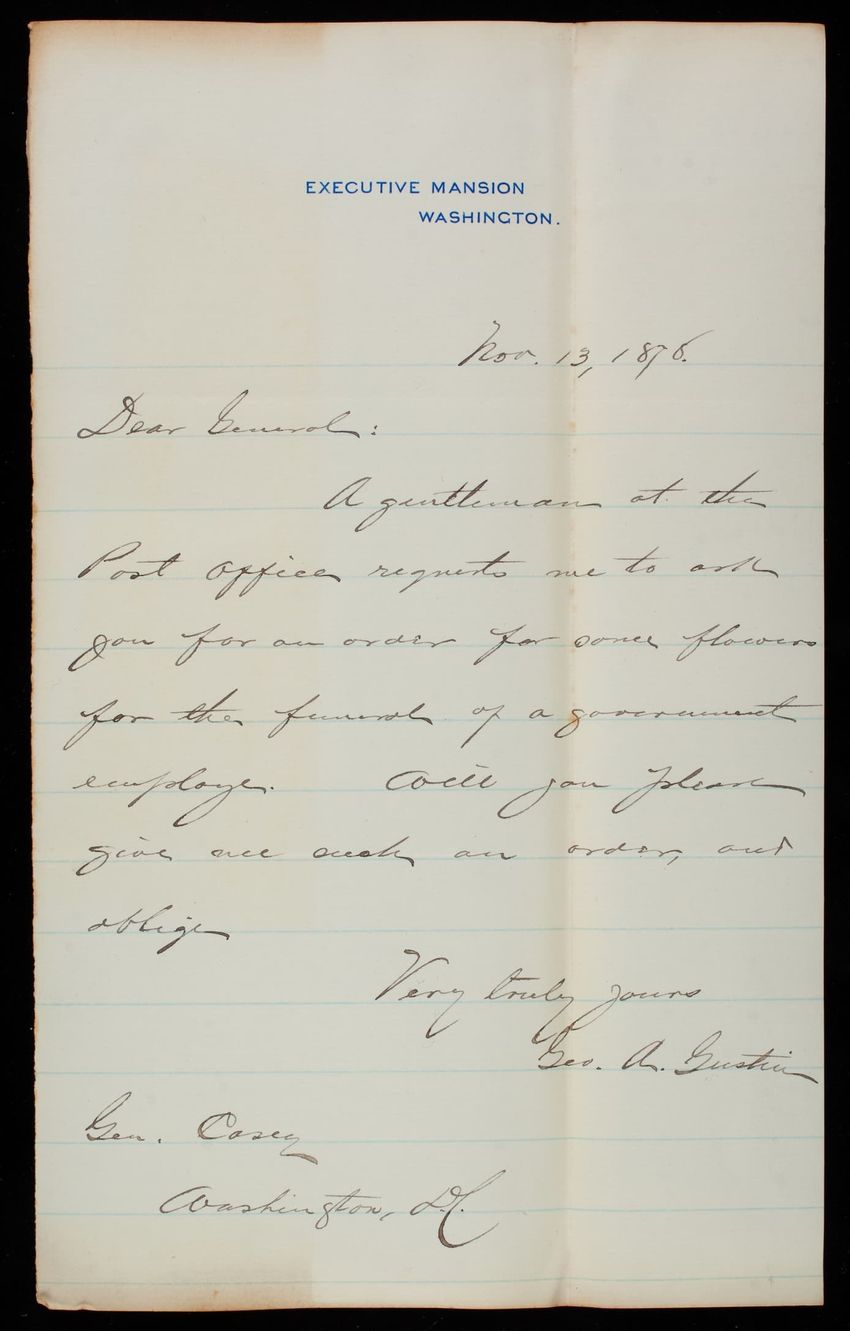 EXECUTIVE MANSION
WASHINGTON.
Nov. 13, 1878.
Dear General:
A gentleman at the
Post Office requests me to ask
you for an order for some flowers
for the funeral of a government
employe. Will you please
give me such an order, and
oblige
Very truly yours
Geo. A. Gustin
Gen. Casey
Washington, D.C.